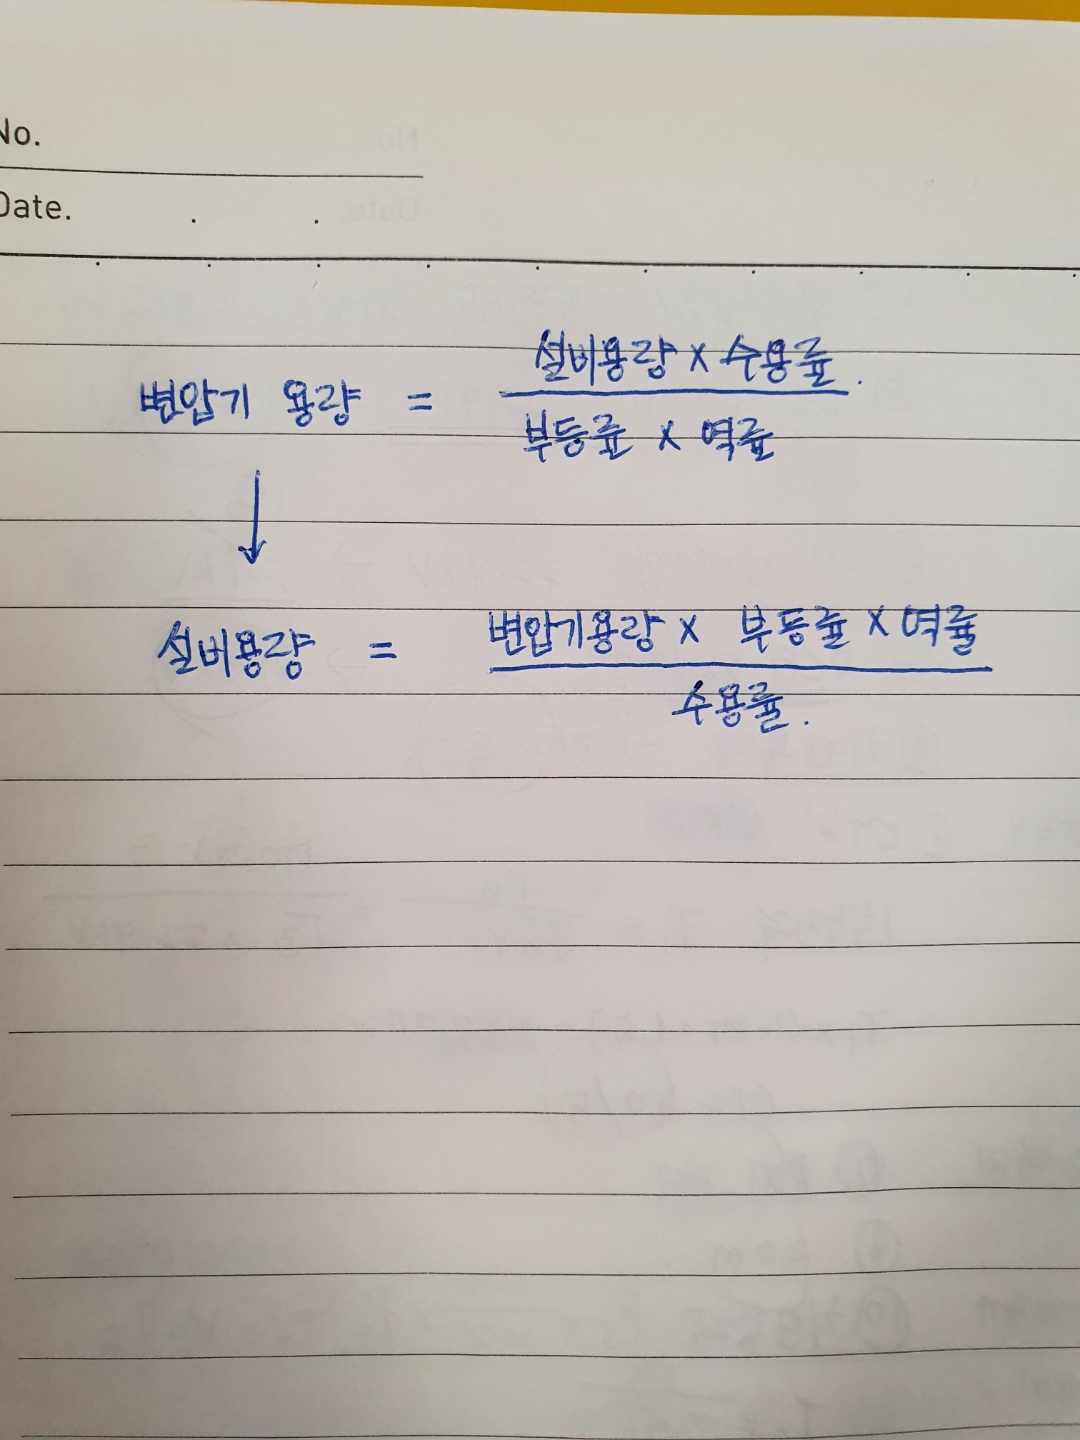 No.
Date. . .
변압기 용량 = 설비용량 × 수용률.
부등률 × 역률
↓
설비용량 = 변압기용량 × 부등률 × 역률
수용률.